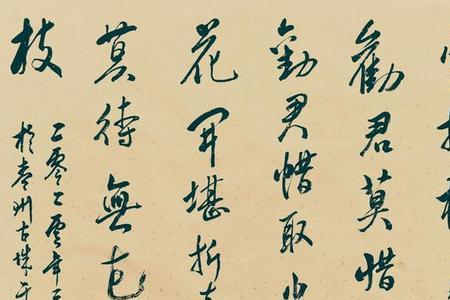 勸君莫惜
勸君惜取少
花開堪折
莫待無花
枝
二零二零年
於州古